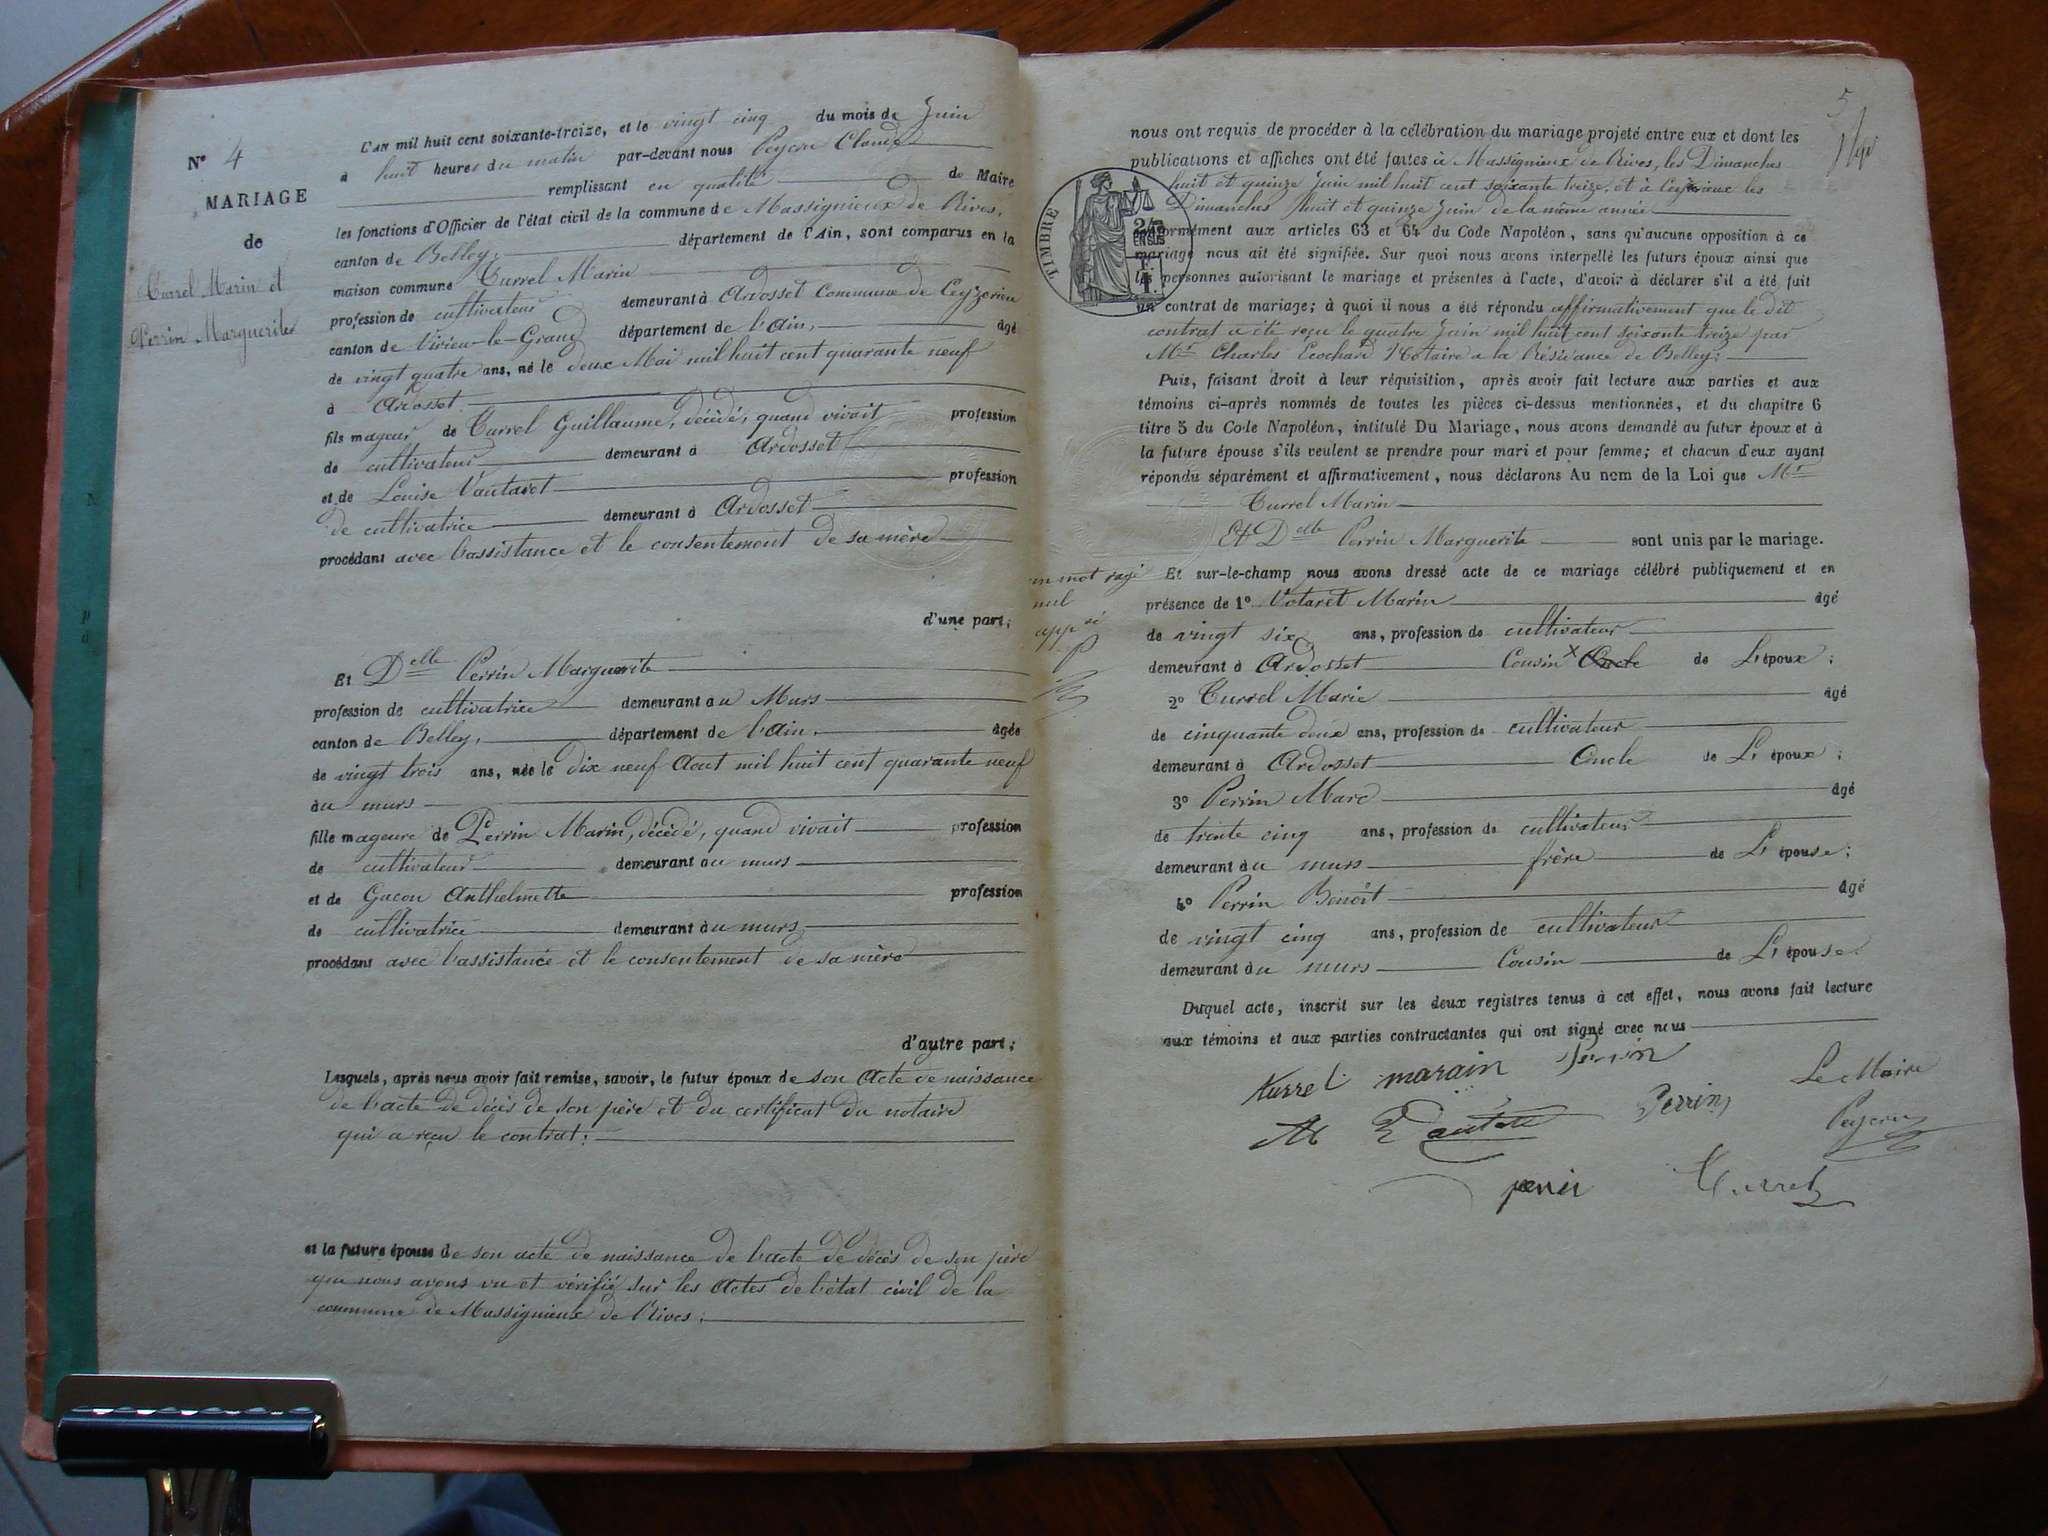 N° 4
MARIAGE
de
Turrel Marin et
Perrin Marguerite
L'an mil huit cent soixante-treize, et le vingt cinq du mois de Juin
à huit heures du matin par-devant nous Peycru Claude
remplissant en qualité de Maire
les fonctions d'Officier de l'état civil de la commune de Massignieux de Rives,
canton de Belley, département de l'Ain, sont comparus en la
maison commune Turrel Marin
profession de cultivateur demeurant à Ardosset Commune de Ceyzerieu
canton de Virieu-le-Grand département de l'ain, âgé
de vingt quatre ans, né le deux Mai mil huit cent quarante neuf
à Ardosset
fils mageur de Turrel Guillaume, décédé, quand vivait profession
de cultivateur demeurant à Ardosset
et de Louise Vautaret profession
de cultivatrice demeurant à Ardosset
procédant avec l'assistance et le consentement de sa mère
d'une part;
Et Delle Perrin Marguerite
profession de cultivatrice demeurant au Murs
canton de Belley, département de l'ain, âgée
de vingt trois ans, née le dix neuf Aout mil huit cent quarante neuf
au murs
fille mageure de Perrin Marin, décédé, quand vivait profession
de cultivateur demeurant au murs
et de Gacon Anthelmette profession
de cultivatrice demeurant au murs,
procédant avec l'assistance et le consentement de sa mère
d'autre part;
Lesquels, après nous avoir fait remise, savoir, le futur époux de son Acte de naissance
de l'acte de décès de son père et du certificat du notaire
qui a reçu le contrat;
et la future épouse de son acte de naissance de l'acte de décès de son père
que nous avons vu et vérifié sur les Actes de l'état civil de la
commune de Massignieux de Rives.
5
nous ont requis de procéder à la célébration du mariage projeté entre eux et dont les
publications et affiches ont été faites à Massignieux de Rives, les Dimanches
huit et quinze Juin mil huit cent soixante treize, et à Ceyzerieux les
Dimanches huit et quinze Juin de la même année
TIMBRE
2/10
EN SUS
1 F.
conformément aux articles 63 et 64 du Code Napoléon, sans qu'aucune opposition à ce
mariage nous ait été signifiée. Sur quoi nous avons interpellé les futurs époux ainsi que
les personnes autorisant le mariage et présentes à l'acte, d'avoir à déclarer s'il a été fait
un contrat de mariage; à quoi il nous a été répondu affirmativement que le dit
contrat a été reçu le quatre Juin mil huit cent soixante treize par
Mr Charles Ecochard Notaire a la Résidance de Belley;
Puis, faisant droit à leur réquisition, après avoir fait lecture aux parties et aux
témoins ci-après nommés de toutes les pièces ci-dessus mentionnées, et du chapitre 6
titre 5 du Code Napoléon, intitulé Du Mariage, nous avons demandé au futur époux et à
la future épouse s'ils veulent se prendre pour mari et pour femme; et chacun d'eux ayant
répondu séparément et affirmativement, nous déclarons Au nom de la Loi que Mr
Turrel Marin
Et Delle Perrin Marguerite sont unis par le mariage.
Et sur-le-champ nous avons dressé acte de ce mariage célébré publiquement et en
présence de 1° Votaret Marin âgé
de vingt six ans, profession de cultivateur
demeurant à Ardosset Cousin x Oncle de L'époux;
un mot rayé
nul
2° Turrel Marie âgé
de cinquante deux ans, profession de cultivateur
demeurant à Ardosset Oncle de L'époux;
3° Perrin Marc âgé
de trente cinq ans, profession de cultivateur
demeurant au murs frère de L'épouse;
4° Perrin Benoît âgé
de vingt cinq ans, profession de cultivateur
demeurant au murs Cousin de L'épouse.
Duquel acte, inscrit sur les deux registres tenus à cet effet, nous avons fait lecture
aux témoins et aux parties contractantes qui ont signé avec nous
turrel marain Perrin Le Maire
M Perrin Peycru
Turrel